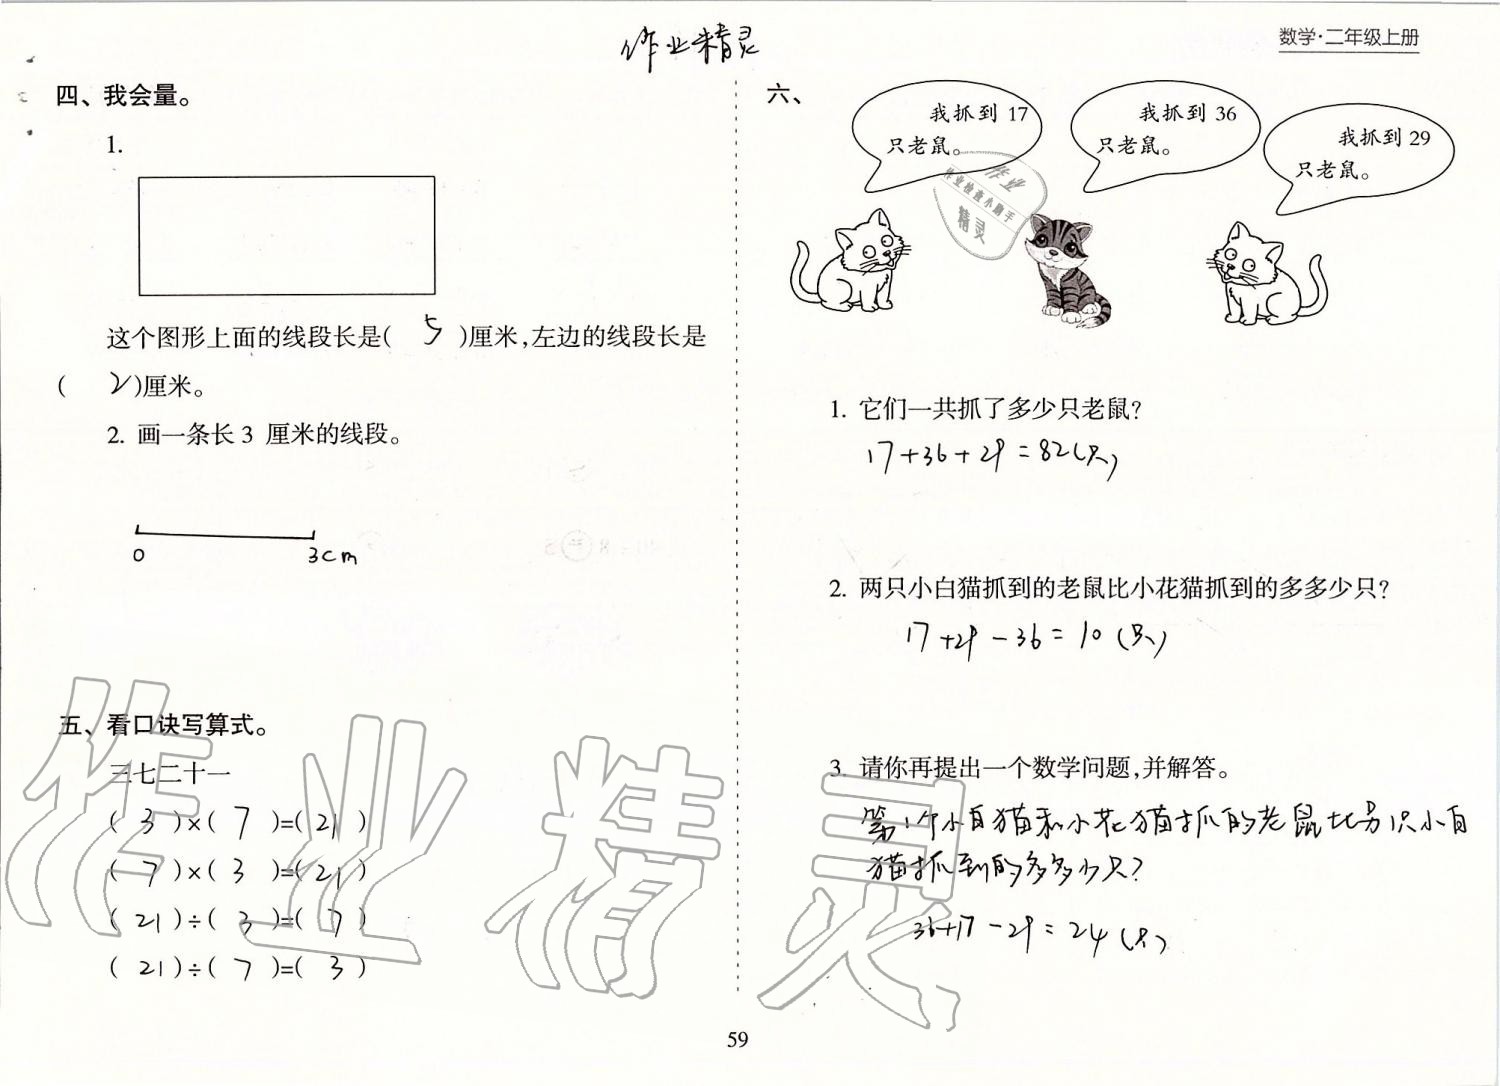 作业精灵
数学·二年级上册
四、我会量。
1.
这个图形上面的线段长是( 5 )厘米,左边的线段长是
( 2 )厘米。
2. 画一条长 3 厘米的线段。
0 3cm
五、看口诀写算式。
三七二十一
( 3 )×( 7 )=( 21 )
( 7 )×( 3 )=( 21 )
( 21 )÷( 3 )=( 7 )
( 21 )÷( 7 )=( 3 )
六、
我抓到 17
只老鼠。
我抓到 36
只老鼠。
我抓到 29
只老鼠。
作业
作业检查小助手
精灵
1. 它们一共抓了多少只老鼠?
17+36+29=82(只)
2. 两只小白猫抓到的老鼠比小花猫抓到的多多少只?
17+29-36=10(只)
3. 请你再提出一个数学问题,并解答。
第1个小白猫和小花猫抓的老鼠比另1只小白
猫抓到的多多少只?
36+17-29=24(只)
作业精灵
59